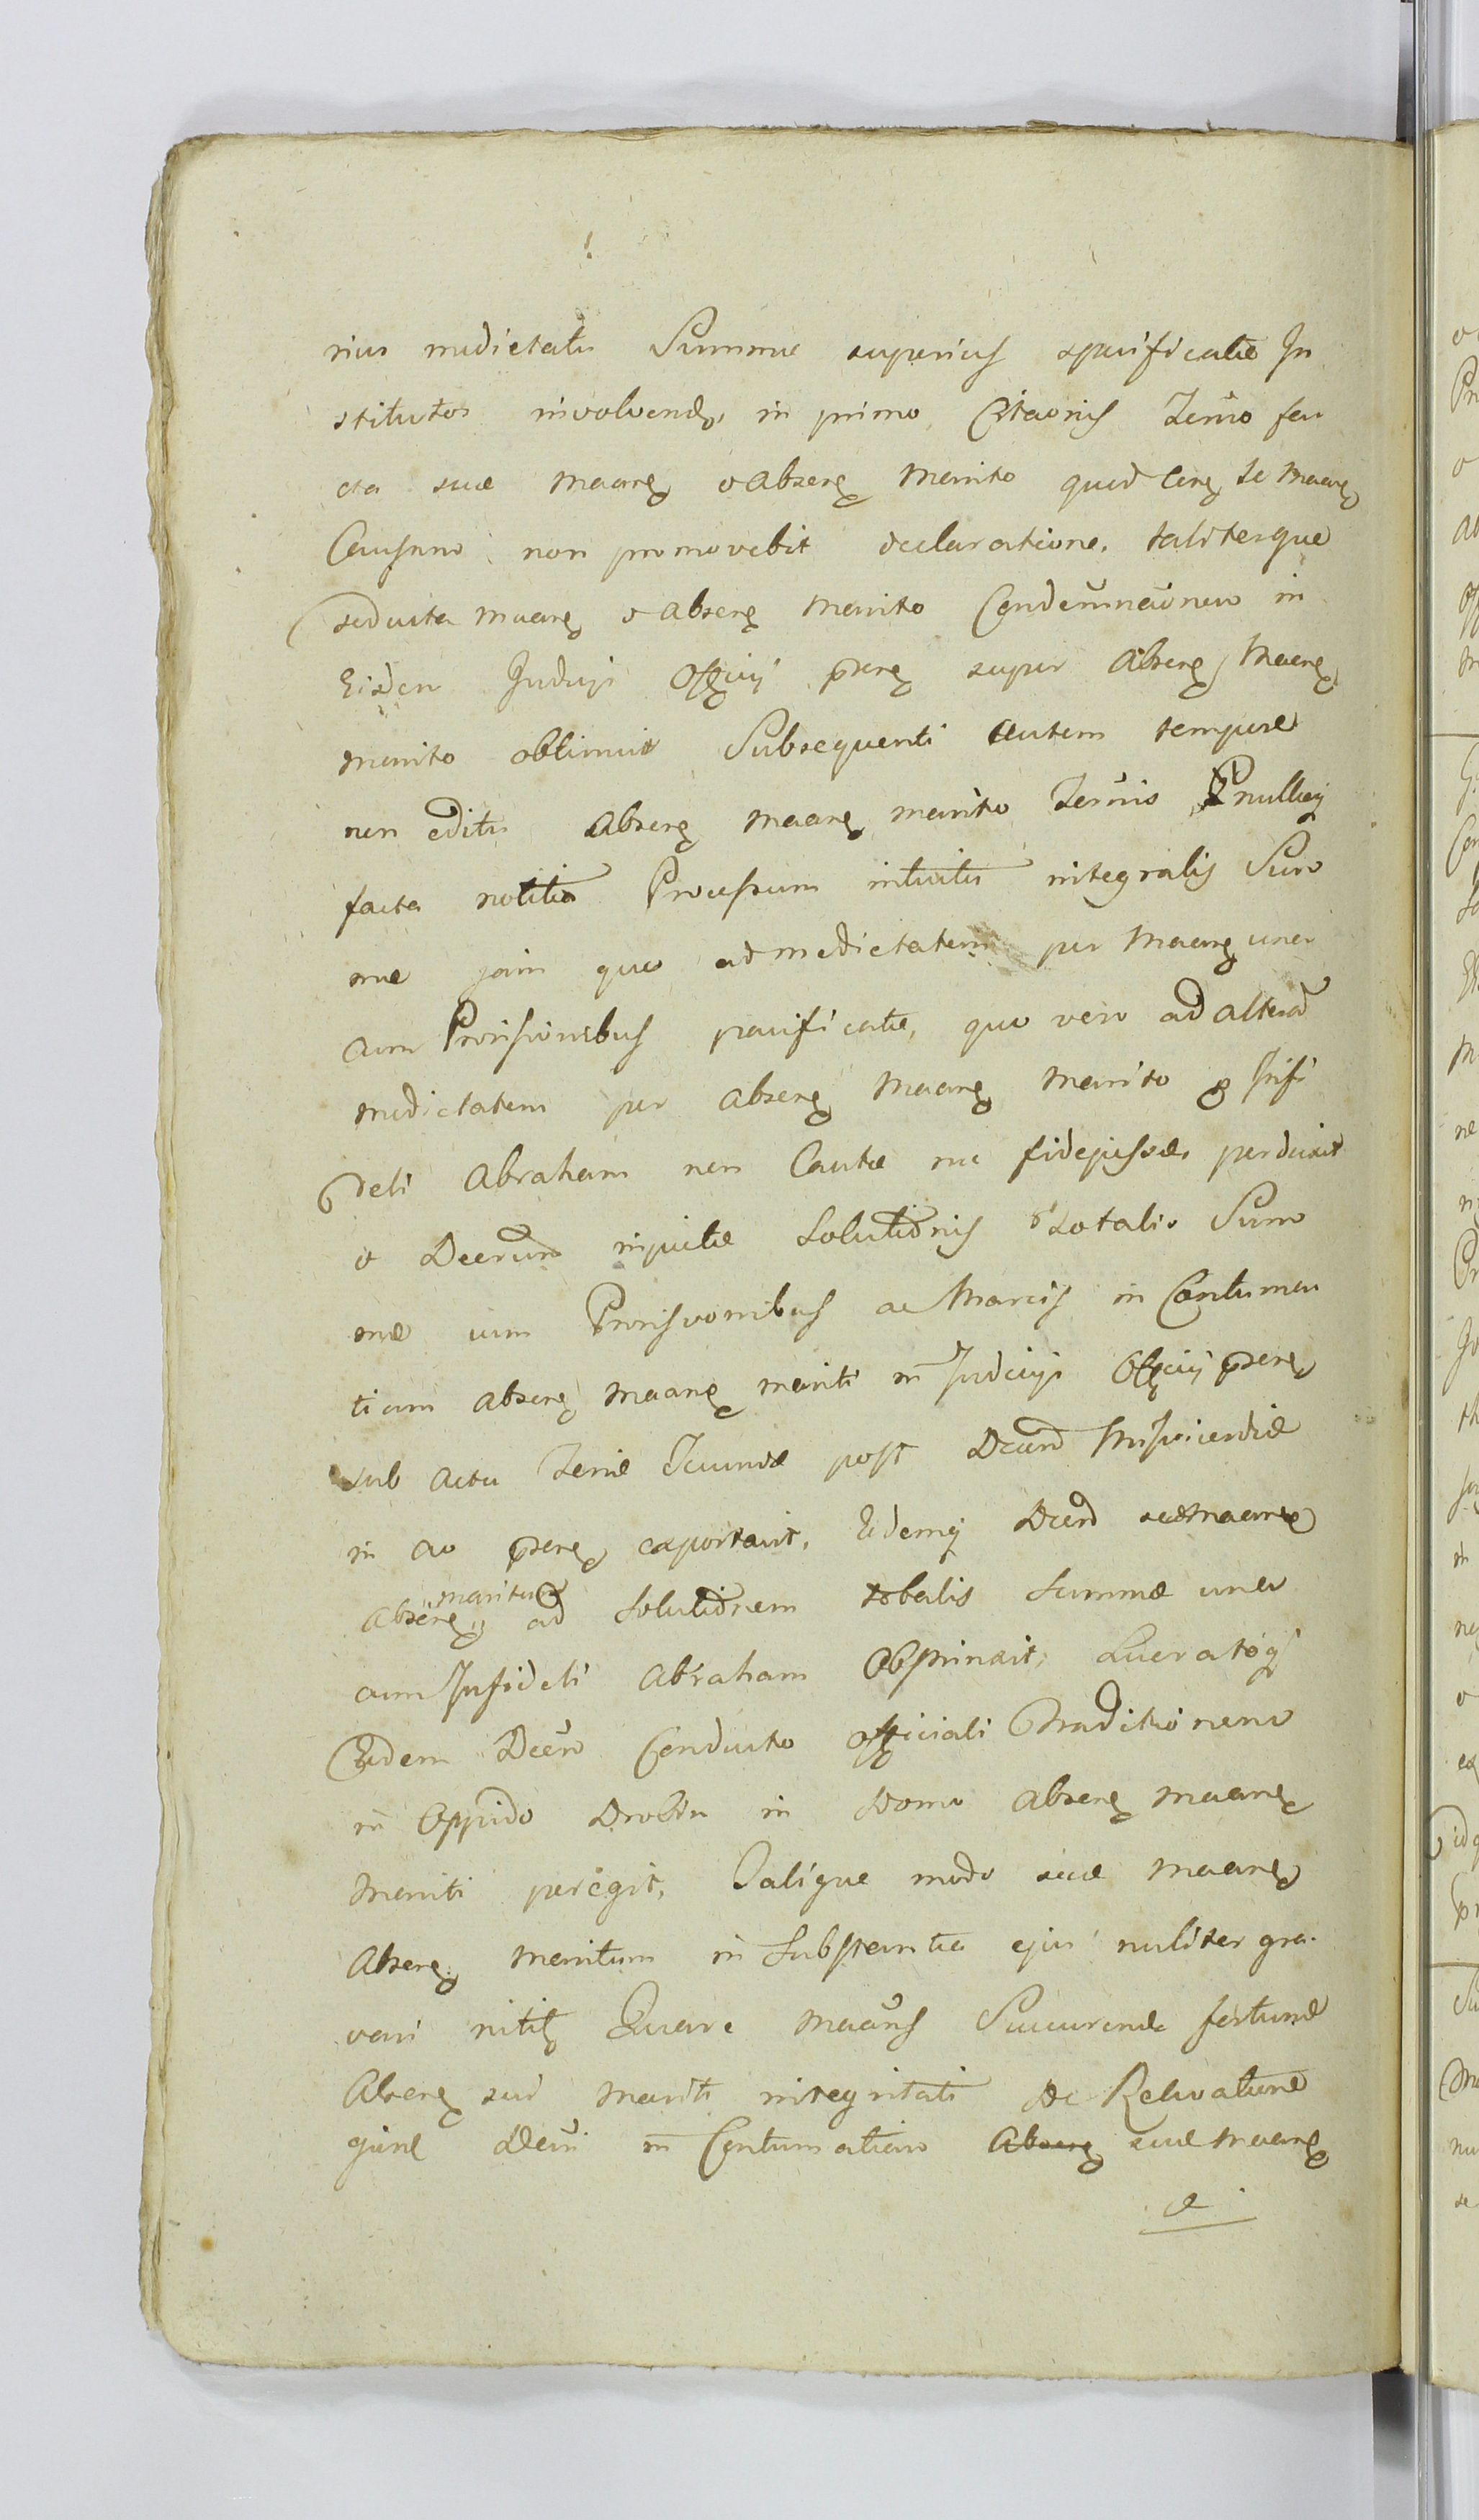 rius medietatis Summae superius specificatae In
stitutos involvend, in primo Citaonis Termo fa
cta suae Maan & Absen Marito quod Con se Maan
Causam non promovebit declaratione, taliterque
seducta Maan & Absen Marito Condemnaonem in
Eisdem Judicys Officij psen super Absen Maan
marito obtinuit Subsequenti autem tempore
non editis Absen Maan marito Termis nullaq
facta notitia Processum intuitu integralis Sum
mae jam quo ad medietatem per Maan una
cum Provisionibus pacificatae, quo vero ad alteram
medietatem per Absen Maan Marito Infi
deli Abraham non Cautae nec fidejussae perduxit
& Decretum injustae Solutionis totalis Sum
mae cum Provisionibus ac Marcis in Contuma
tiam Absen Maan mariti in Judicijs Officij psen
sub actu Feriae Secundae post Dcam Misericordiae
in ao psen exportavit, Eodemq Decro suae Maan
Absen maritum ad Solutionem totalis Summae una
cum Infideli Abraham Obstrinxit, Lucratoq
Eodem Decro Conducto officiali Traditionem
in Oppido Drobin in Domo Absen Maan
Mariti peregit, Talique modo suae Maan
Absen Maritum in Substantia ejus nuliter gra
vari nitit Quare Maans Succurendo fortunae
Absen sui Mariti integritati De Relevatione
gine Decri in Contumatiam Absen suae Maan